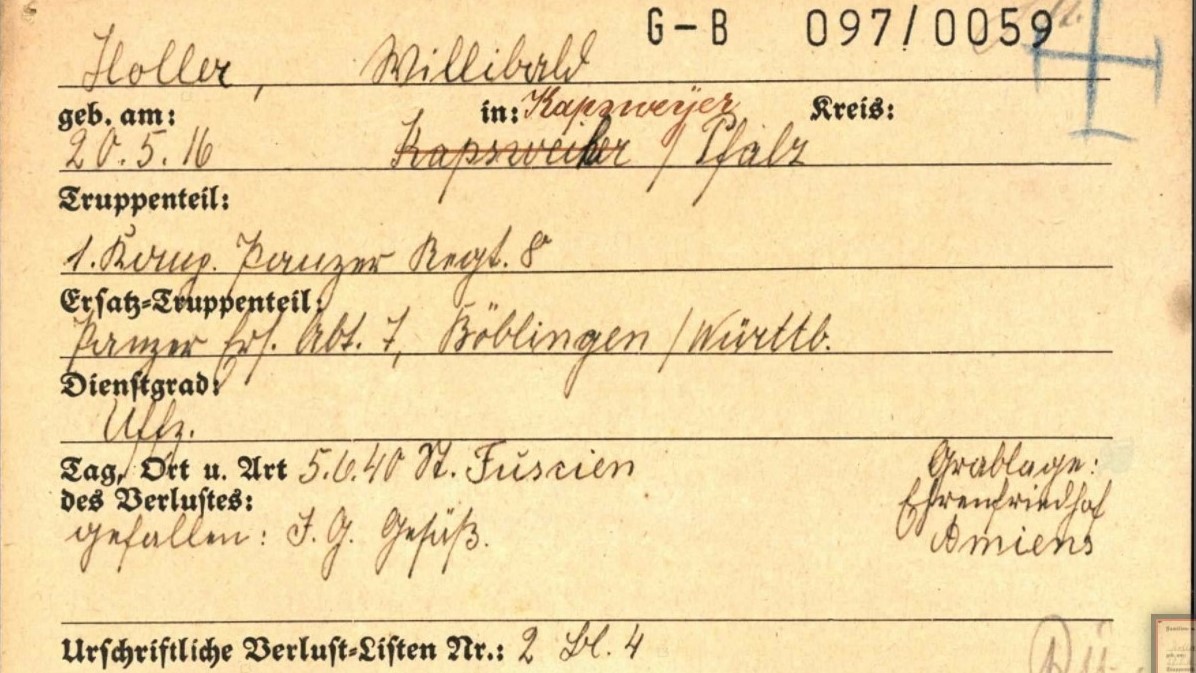 G-B 097/0059
Holler, Willibald
geb. am: in: Kapsweyer Kreis:
20.5.16 Kapsweiler / Pfalz
Truppenteil:
1. Komp. Panzer Regt. 8
Ersatz-Truppenteil:
Panzer Ers. Abt. 7, Böblingen / Württb.
Dienstgrad:
Uffz.
Tag, Ort u. Art 5.6.40 St. Fuscien Grablage:
des Verlustes: Ehrenfriedhof
gefallen: I. G. Gesäß. Amiens
Urschriftliche Verlust-Listen Nr.: 2 Bl. 4